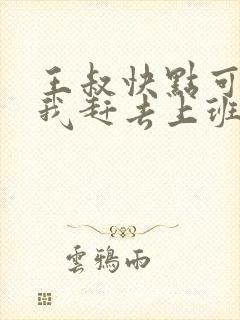 王叔快點可
我赶去上班
雲鴉雨